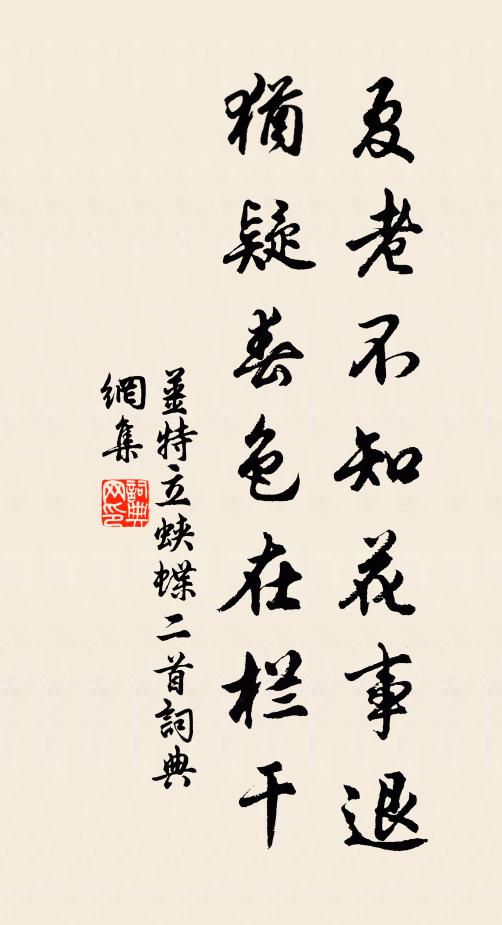 夏老不知花事退
猶疑春色在栏干
薑特立蛱蝶二首詞典
網集
詞典
网印